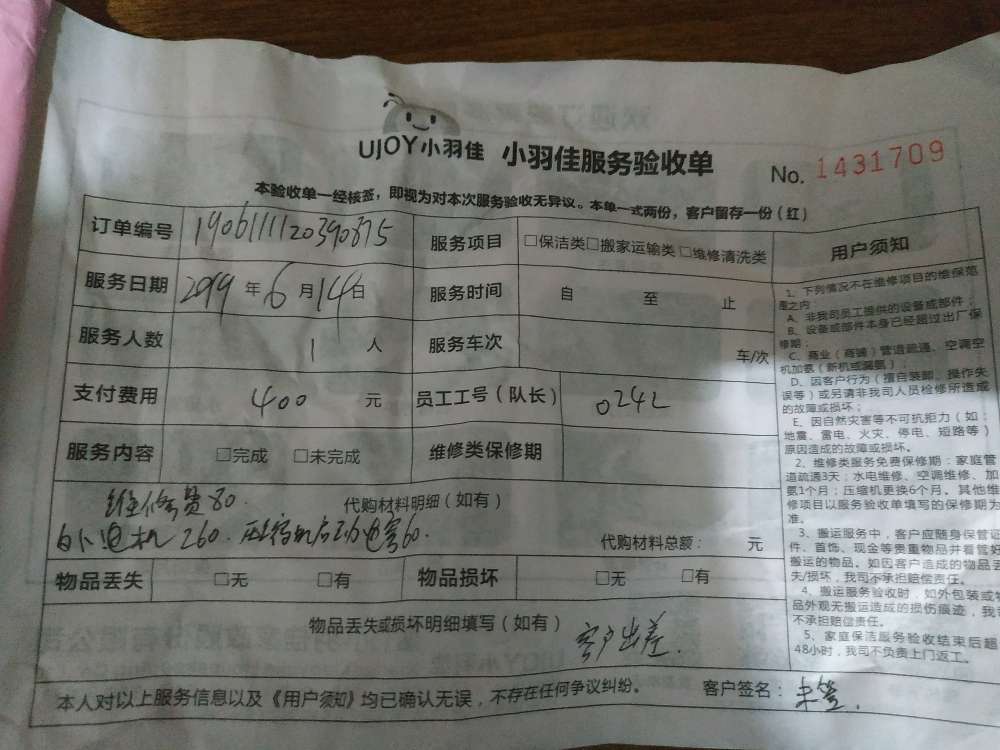 UJOY小羽佳 小羽佳服务验收单 No. 1431709
本验收单一经核签，即视为对本次服务验收无异议。本单一式两份，客户留存一份（红）
订单编号 190611112039087 5 服务项目 □保洁类□搬家运输类 □维修清洗类
服务日期 2019年6月14日 服务时间 自 至 止
服务人数 1 人 服务车次 车/次
支付费用 400 元 员工工号（队长） 0242
服务内容 □完成 □未完成 维修类保修期
代购材料明细（如有）
维修费80
外电机260. 压缩机启动电容60.
代购材料总额： 元
物品丢失 □无 □有 物品损坏 □无 □有
物品丢失或损坏明细填写（如有）
客户出差.
本人对以上服务信息以及《用户须知》均已确认无误，不存在任何争议纠纷。 客户签名：未签.
用户须知
1、下列情况不在维修项目的维保范
围之内：
A、非我司员工提供的设备或部件；
B、设备或部件本身已经超过出厂保
修期；
C、商业（商铺）管道疏通、空调空
机加氨（新机或漏氨）；
D、因客户行为（擅自装卸、操作失
误等）或另请非我司人员检修所造成
的故障或损坏；
E、因自然灾害等不可抗拒力（如：
地震、雷电、火灾、停电、短路等）
原因造成的故障或损坏。
2、维修类服务免费保修期：家庭管
道疏通3天；水电维修、空调维修、加
氨1个月；压缩机更换6个月。其他维
修项目以服务验收单填写的保修期为
准。
3、搬运服务中，客户应随身保管证
件、首饰、现金等贵重物品并看管好
搬运的物品。如因客户造成的物品丢
失/损坏，我司不承担赔偿责任。
4、搬运服务验收时，如外包装或物
品外观无搬运造成的损伤痕迹，我司
不承担赔偿责任。
5、家庭保洁服务验收结束后超
48小时，我司不负责上门返工。